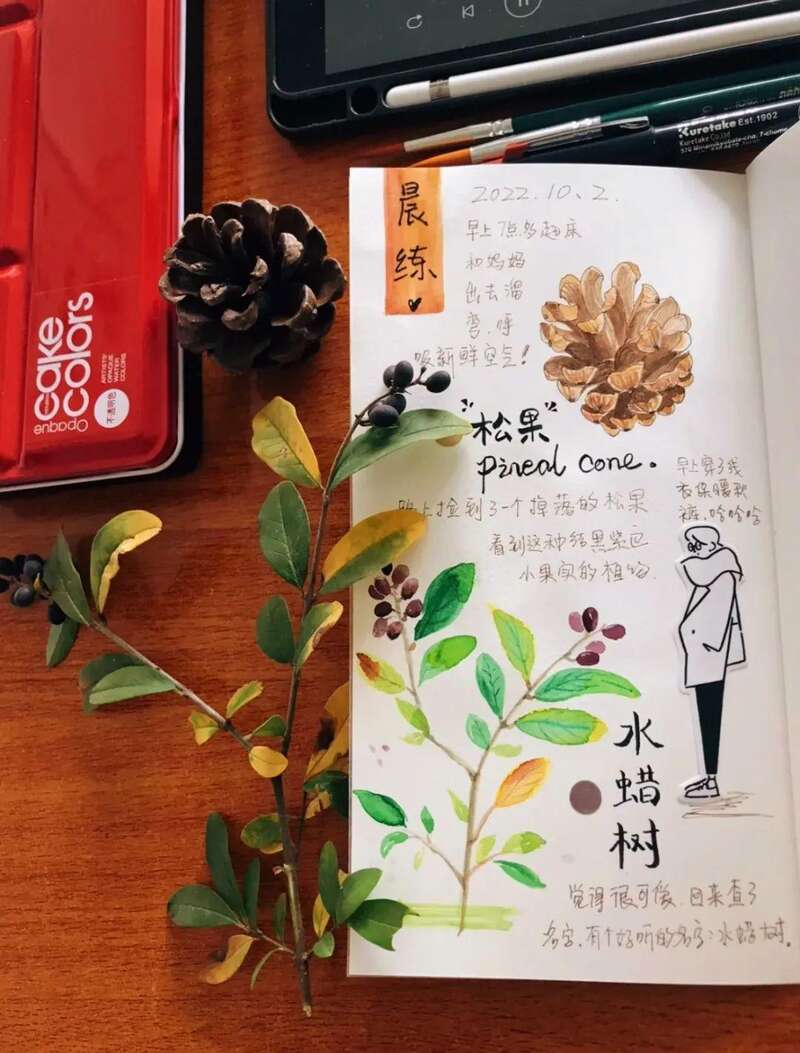 Kuretake Est.1902
Kuretake Co.,Ltd
cake
colors
Opaque
ARTISTS'
OPAQUE
WATER
COLORS
不透明色
晨
练
2022.10.2.
早上7点多起床
和妈妈
出去溜
弯,呼
吸新鲜空气!
"松果"
Pineal cone.
路上捡到了一个掉落的松果
看到这种结黑紫色
小果实的植物.
早上穿了线
衣保暖秋
裤,哈哈哈
水
蜡
树
觉得很可爱.回来查了
名字,有个好听的名字:水蜡树.